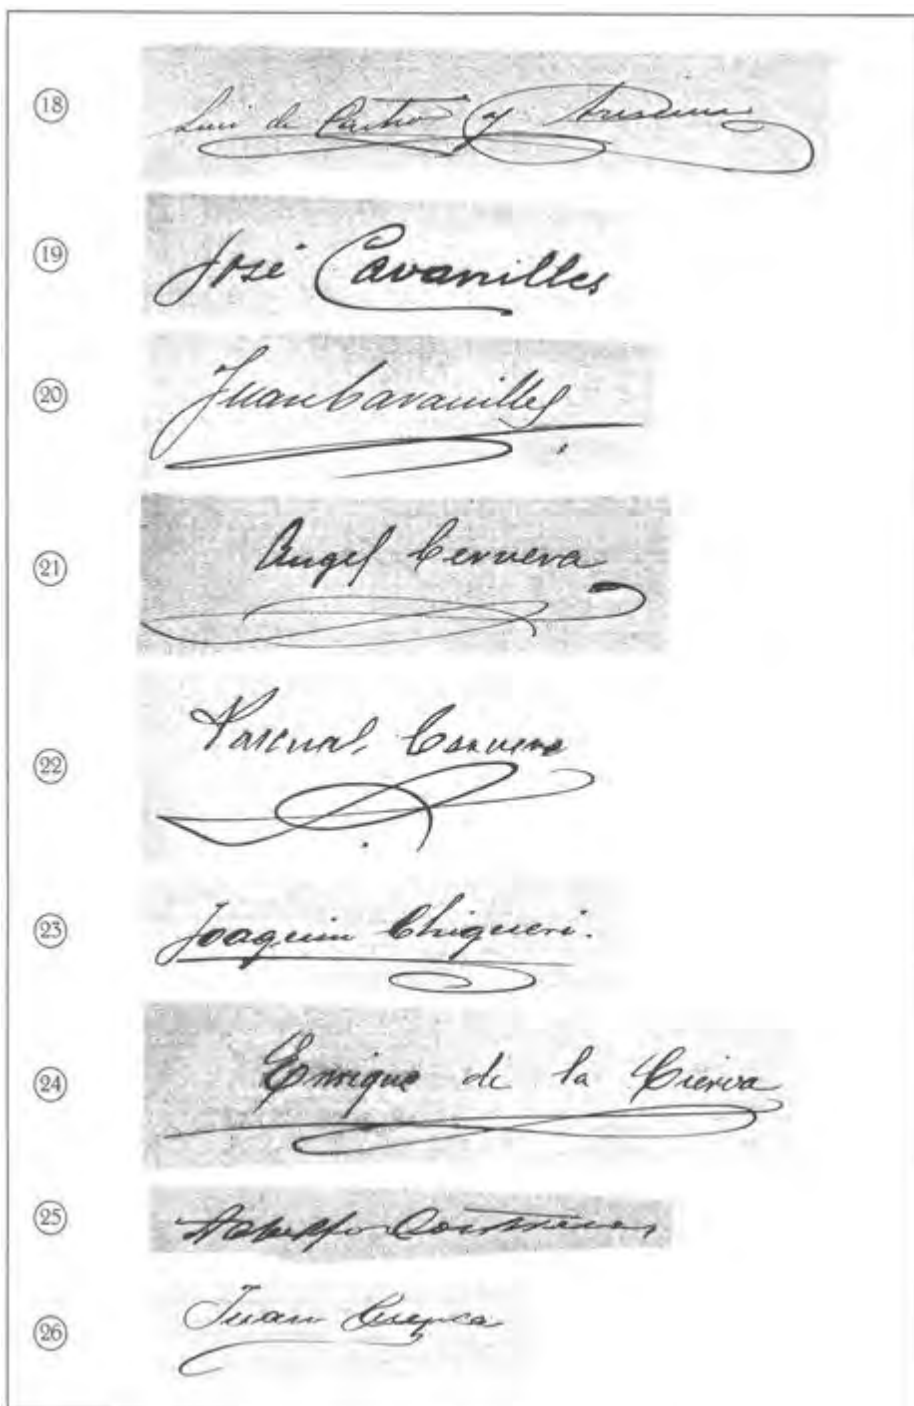 18
Luis de Castro y
19
José Cavanilles
20
Juan Cavanilles
21
Angel Cervera
22
Pascual Cervera
23
Joaquin Chigueri.
24
Enrique de la Cierva
25
26
Juan Cuenca